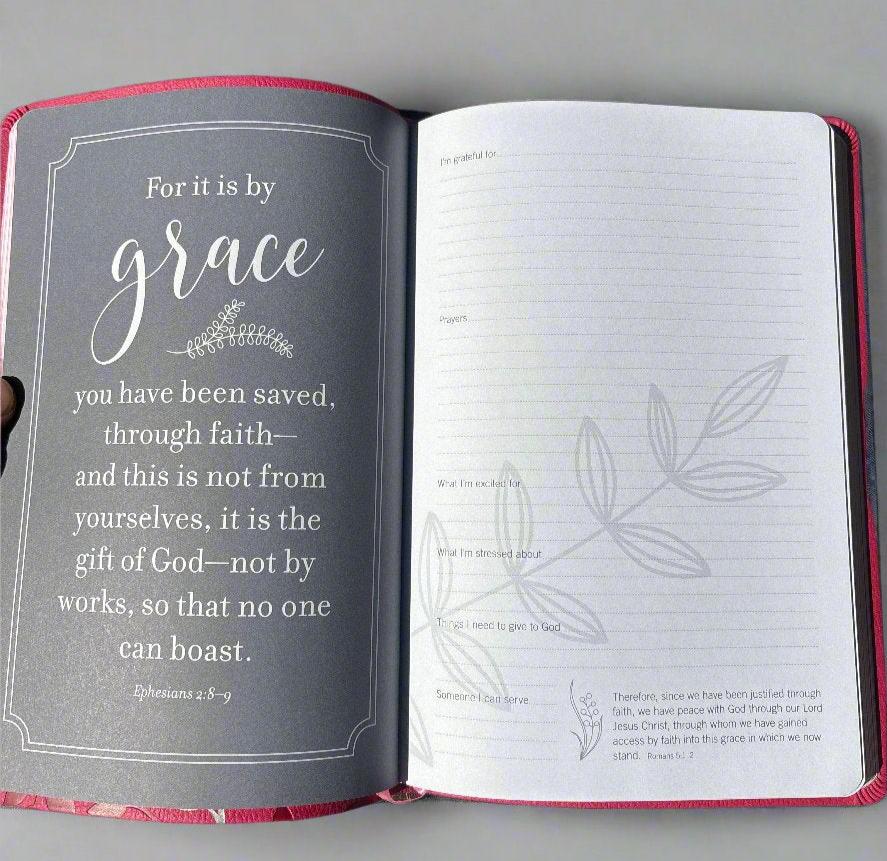 For it is by
grace
you have been saved,
through faith—
and this is not from
yourselves, it is the
gift of God—not by
works, so that no one
can boast.
Ephesians 2:8–9
I'm grateful for
Prayers
What I'm excited for
What I'm stressed about
Things I need to give to God
Someone I can serve
Therefore, since we have been justified through
faith, we have peace with God through our Lord
Jesus Christ, through whom we have gained
access by faith into this grace in which we now
stand. Romans 5:1–2